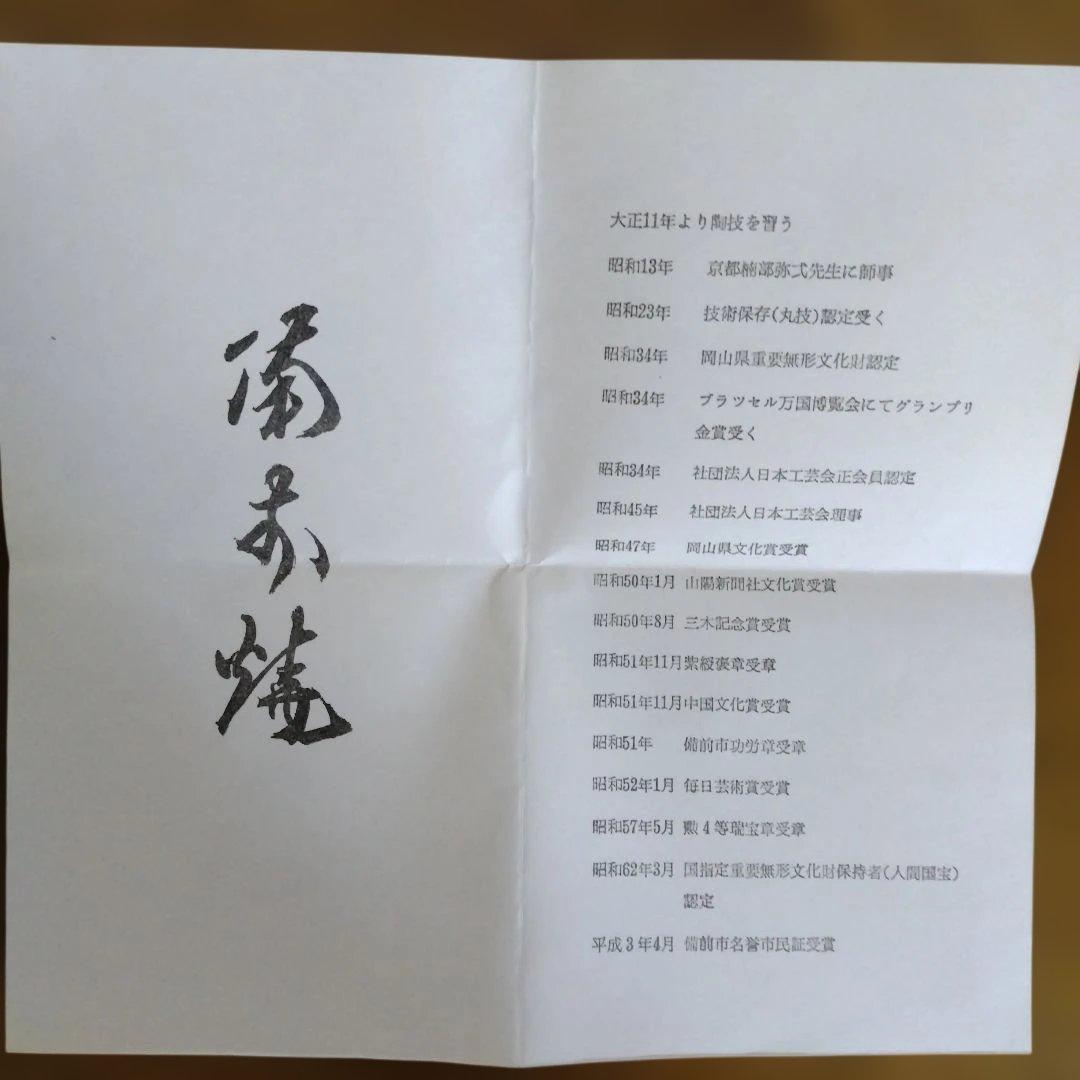 備前焼
大正11年より陶技を習う
昭和13年 京都楠部弥弌先生に師事
昭和23年 技術保存(丸技)認定受く
昭和34年 岡山県重要無形文化財認定
昭和34年 ブラツセル万国博覧会にてグランプリ
金賞受く
昭和34年 社団法人日本工芸会正会員認定
昭和45年 社団法人日本工芸会理事
昭和47年 岡山県文化賞受賞
昭和50年1月 山陽新聞社文化賞受賞
昭和50年8月 三木記念賞受賞
昭和51年11月 紫綬褒章受章
昭和51年11月 中国文化賞受賞
昭和51年 備前市功労章受章
昭和52年1月 毎日芸術賞受賞
昭和57年5月 勲4等瑞宝章受章
昭和62年3月 国指定重要無形文化財保持者(人間国宝)
認定
平成3年4月 備前市名誉市民証受賞